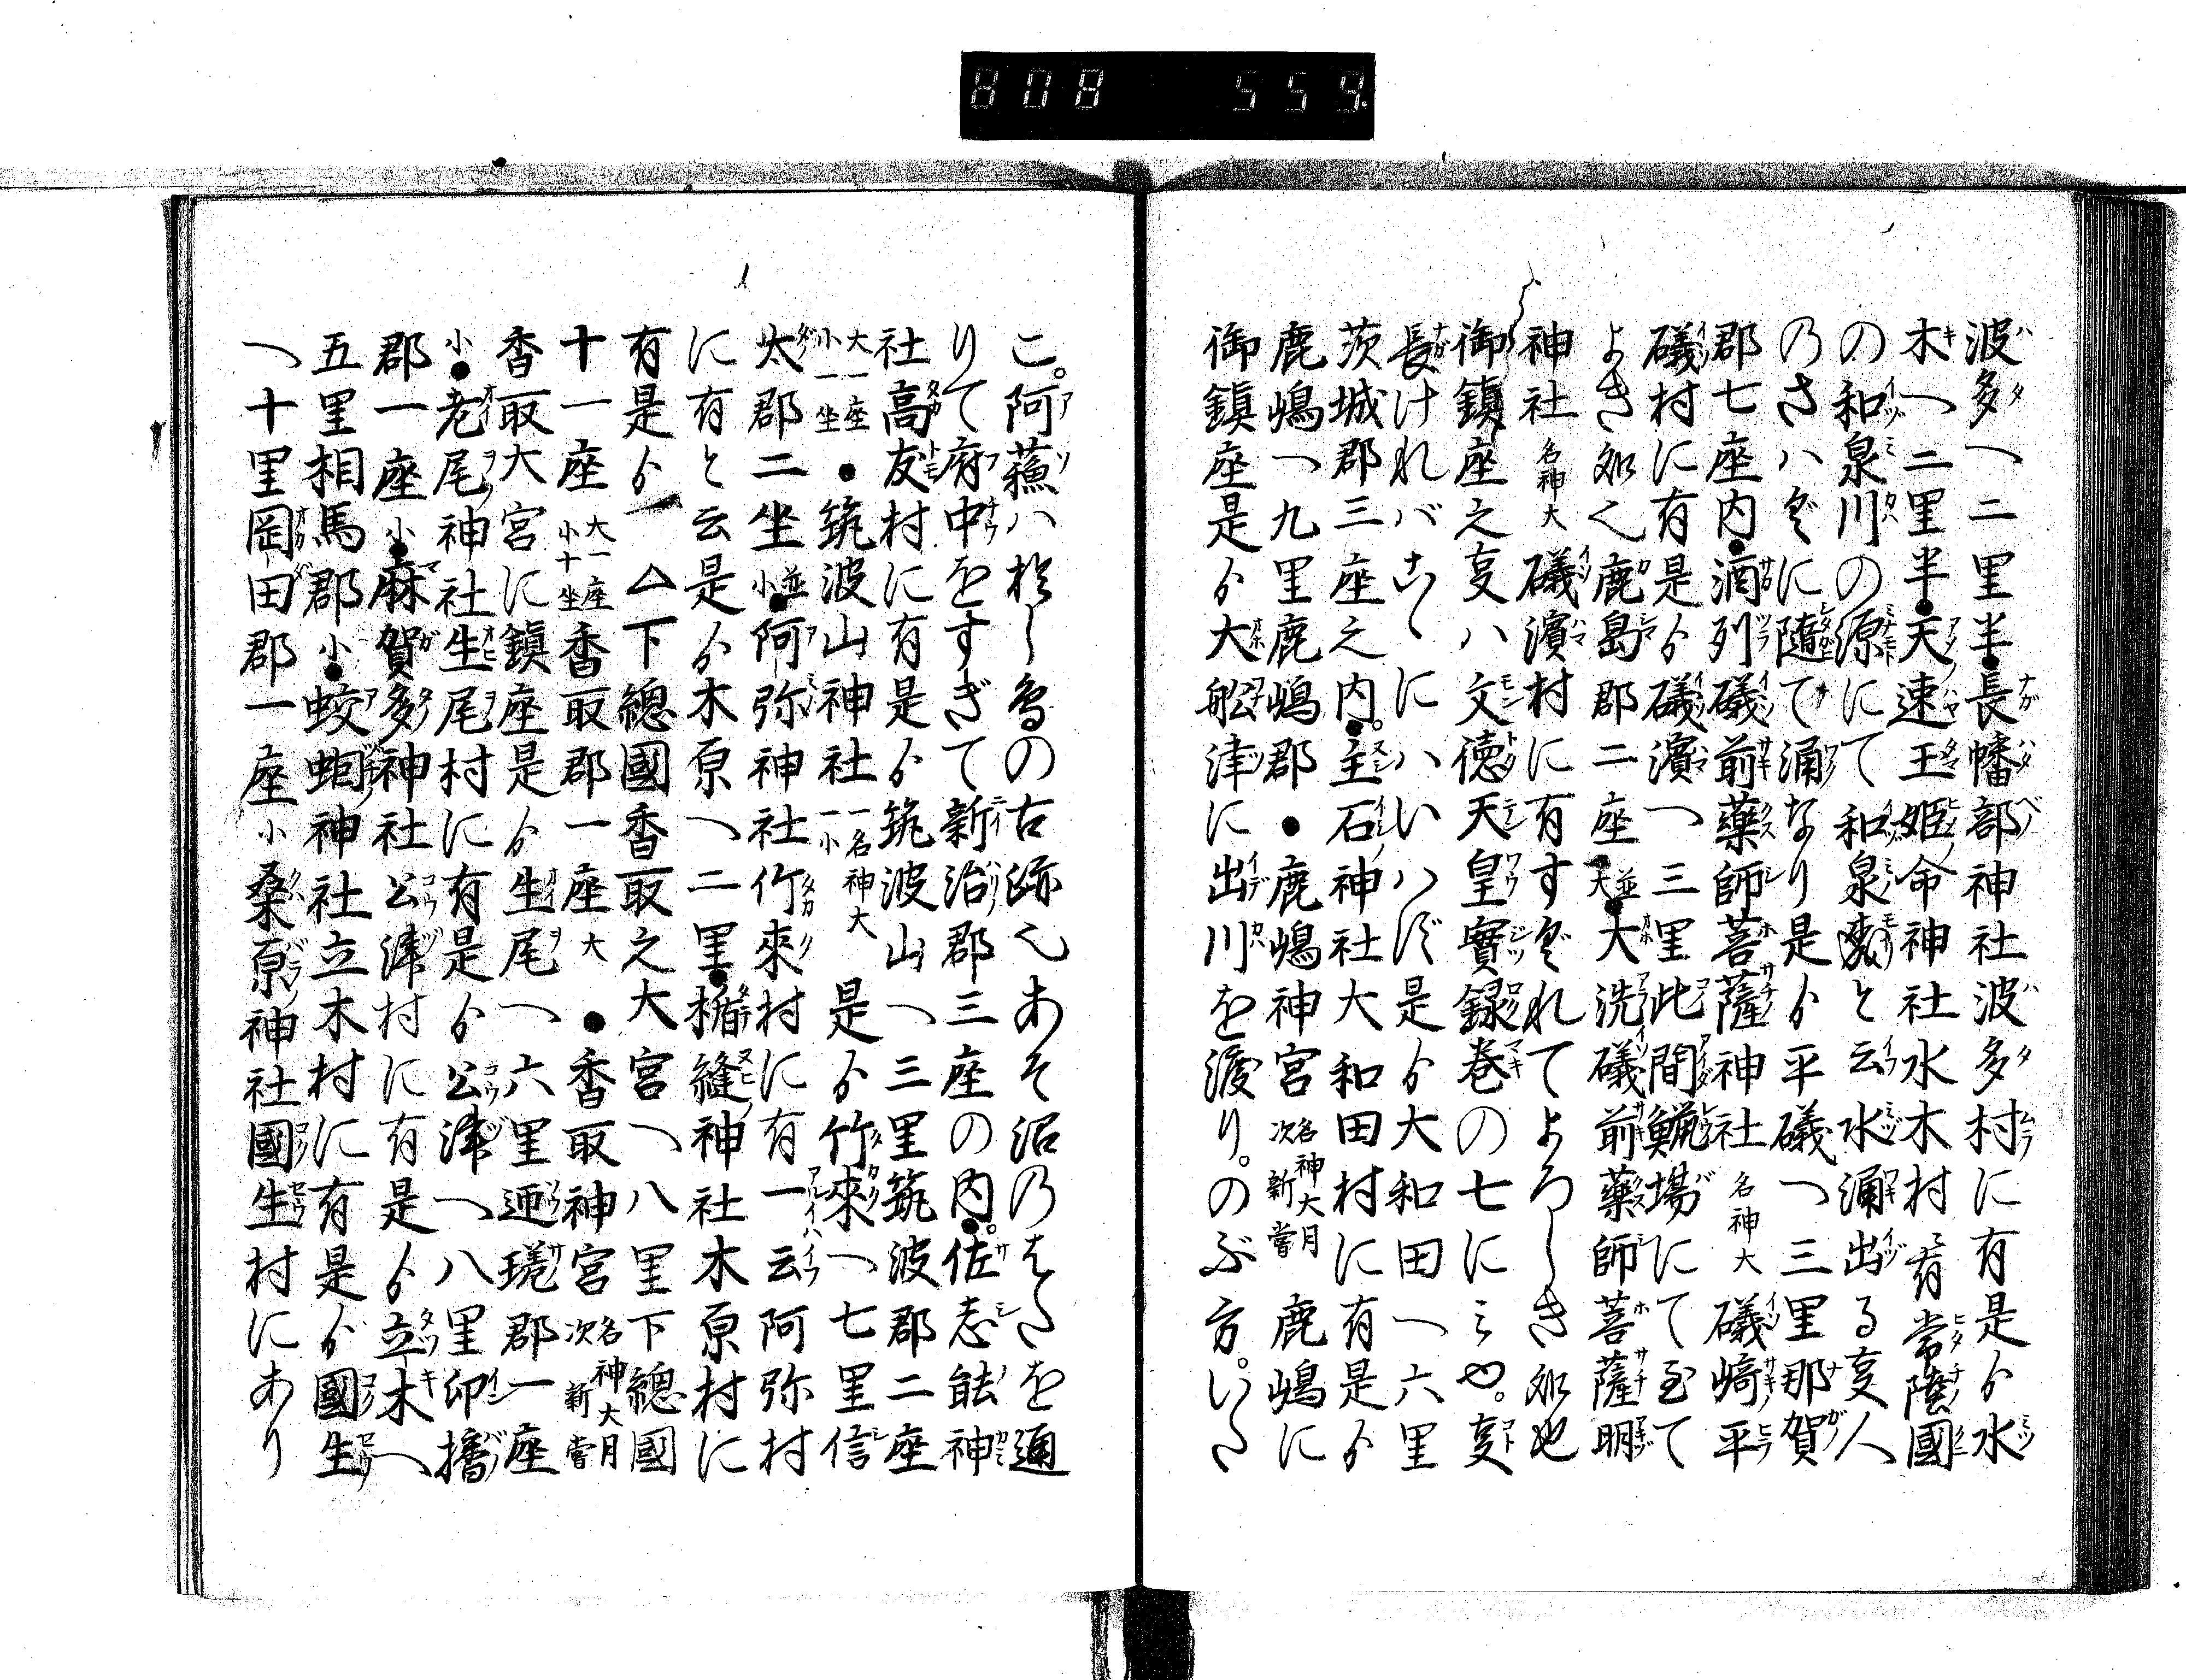 808 559.
波多へ二里半●長幡部神社波多村に有是ゟ水
木へ二里半●天速玉姫命神社水木村に有常陸國
の和泉川の源にて和泉と云水涌出る叓人
のさハぐに随て涌なり是ゟ平礒へ三里那賀
郡七座内●酒列礒前藥師菩薩神社名神大礒﨑平
礒村に有是ゟ礒濱へ三里此間魞場にて至て
よき処也鹿島郡二座並大●大洗礒前藥師菩薩明
神社名神大礒濱村に有すぐれてよろしき処也
御鎮座之叓ハ文徳天皇實録巻の七にみゆ。叓
長けれバこゝにハいハず是ゟ大和田へ六里
茨城郡三座之内。●主石神社大和田村に有是ゟ
鹿嶋へ九里鹿嶋郡●鹿嶋神宮名神大月次新嘗鹿嶋に
御鎮座是ゟ大舩津に出川を渡り。のぶ方。いた
こ。阿蘓ハ於し鳥の古跡也あそ沼のはたを通
りて府中をすぎて新治郡三座の内。●佐志能神
社高友村に有是ゟ筑波山へ三里筑波郡二座
大一座小一坐●筑波山神社一名神大一小是ゟ竹來へ七里信
太郡二坐並小●阿弥神社竹來村に有一云阿弥村
に有と云是ゟ木原へ二里●楯縫神社木原村に
有是ゟ一△下總國香取之大宮へ八里下總國
十一座大一座小十坐香取郡一座大●香取神宮名神大月次新嘗
香取大宮に鎮座是ゟ生尾へ六里迊瑳郡一座
小●老尾神社生尾村に有是ゟ公津へ八里印播
郡一座小●麻賀多神社公津村に有是ゟ立木へ
五里相馬郡小●蛟蝄神社立木村に有是ゟ國生
へ十里岡田郡一座小桑原神社國生村にあり